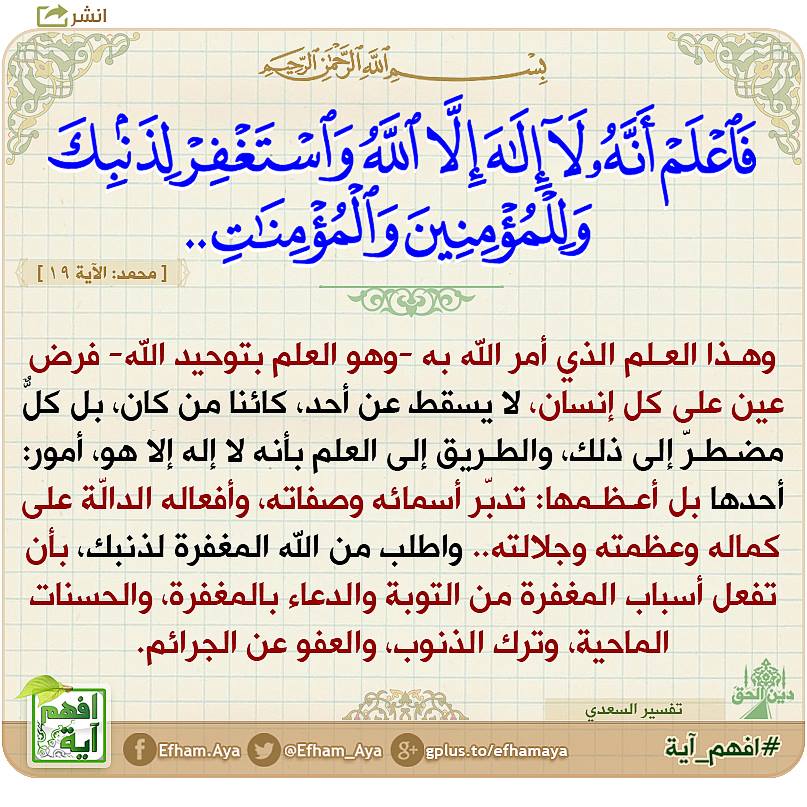 انشر
بِسْمِ ٱللَّهِ ٱلرَّحْمَٰنِ ٱلرَّحِيمِ
فَٱعْلَمْ أَنَّهُۥ لَآ إِلَٰهَ إِلَّا ٱللَّهُ وَٱسْتَغْفِرْ لِذَنۢبِكَ
وَلِلْمُؤْمِنِينَ وَٱلْمُؤْمِنَٰتِ..
[ محمد: الآية ١٩ ]
وهـذا العـلم الذي أمر الله به -وهو العلم بتوحيد الله- فرض
عين على كل إنسان، لا يسقط عن أحد، كائنا من كان، بل كلٌّ
مضـطـرّ إلى ذلك، والطـريق إلى العلم بأنه لا إله إلا هو، أمور:
أحدها بل أعـظـمها: تدبّر أسمائه وصفاته، وأفعاله الدالّة على
كماله وعظمته وجلالته.. واطلب من الله المغفرة لذنبك، بأن
تفعل أسباب المغفرة من التوبة والدعاء بالمغفرة، والحسنات
الماحية، وترك الذنوب، والعفو عن الجرائم.
دين الحق
تفسير السعدي
افهم
آية
Efham.Aya @Efham_Aya gplus.to/efhamaya
#افهم_آية